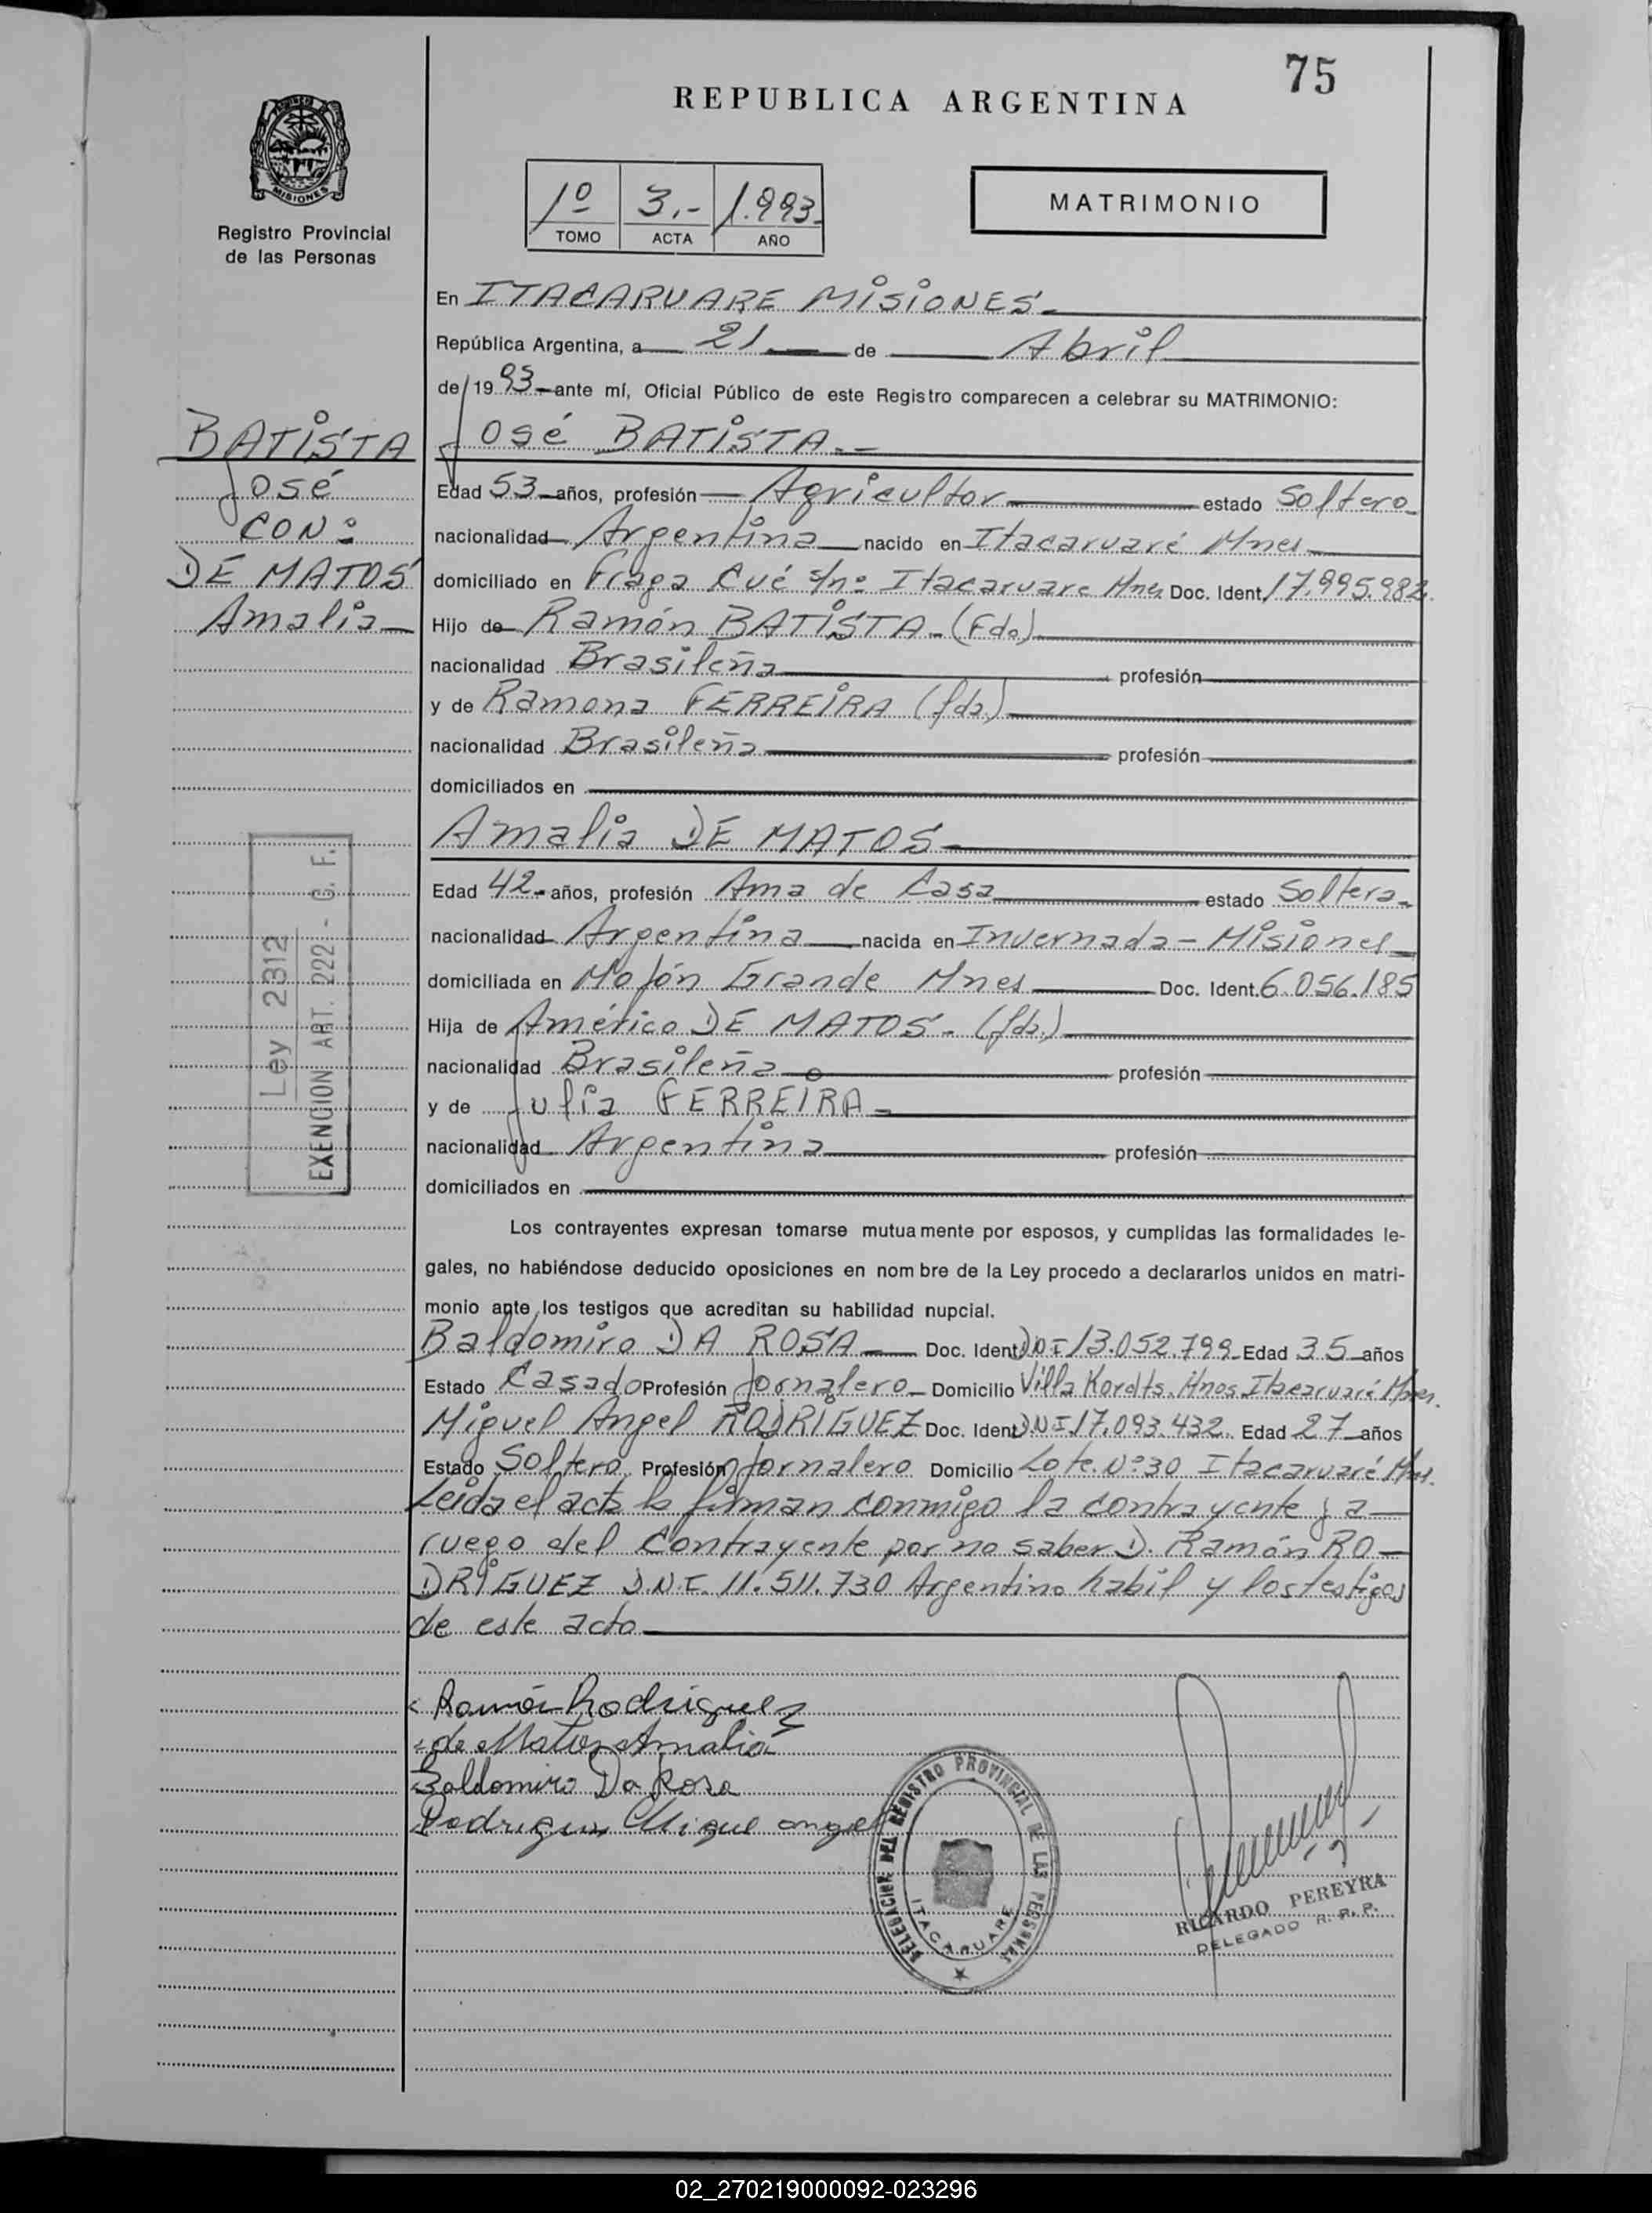 75
REPUBLICA ARGENTINA
MISIONES
Registro Provincial
de las Personas
1º 3.- 1.993.
TOMO ACTA AÑO
MATRIMONIO
En ITACARUARE MISIONES.
República Argentina, a 21 de Abril
de 1993 ante mí, Oficial Público de este Registro comparecen a celebrar su MATRIMONIO:
BATISTA
José
CON:
DE MATOS
Amalia
José BATISTA.-
Edad 53 años, profesión Agricultor estado Soltero
nacionalidad Argentina nacido en Itacaruaré Mnes
domiciliado en Fraga Cué s/nº Itacaruare Mnes Doc. Ident. 17.995.982.
Hijo de Ramón BATISTA. (fdo)
nacionalidad Brasileña profesión
y de Ramona FERREIRA (fda.)
nacionalidad Brasileña profesión
domiciliados en
Amalia DE MATOS
Edad 42 años, profesión Ama de Casa estado Soltera
nacionalidad Argentina nacida en Invernada - Misiones
domiciliada en Mojón Grande Mnes Doc. Ident. 6.056.185
Hija de Américo DE MATOS. (fdo.)
nacionalidad Brasileña profesión
y de Julia FERREIRA
nacionalidad Argentina profesión
domiciliados en
Ley 2312
EXENCION ART. 222 - C. F.
Los contrayentes expresan tomarse mutuamente por esposos, y cumplidas las formalidades le-
gales, no habiéndose deducido oposiciones en nombre de la Ley procedo a declararlos unidos en matri-
monio ante los testigos que acreditan su habilidad nupcial.
Baldomiro DA ROSA Doc. Ident. DNI 13.052.799 Edad 35 años
Estado Casado Profesión Jornalero Domicilio Villa Kordts. Hnos. Itacaruaré Mnes.
Miguel Angel RODRIGUEZ Doc. Ident. DNI 17.093.432. Edad 27 años
Estado Soltero Profesión Jornalero Domicilio Lote. Nº 30 Itacaruaré Mnes.
Leida el acta la firman conmigo la contrayente y a
ruego del Contrayente por no saber D. Ramón RO-
DRIGUEZ D.N.I. 11.511.730 Argentino habil y los testigos
de este acto
Ramón Rodriguez
de Matos Amalia
Baldomiro Da Rosa
Rodriguez Miguel angel
DELEGACION DEL REGISTRO PROVINCIAL DE LAS PERSONAS
ITACARUARE
RICARDO PEREYRA
DELEGADO R. P. P.
02_270219000092-023296